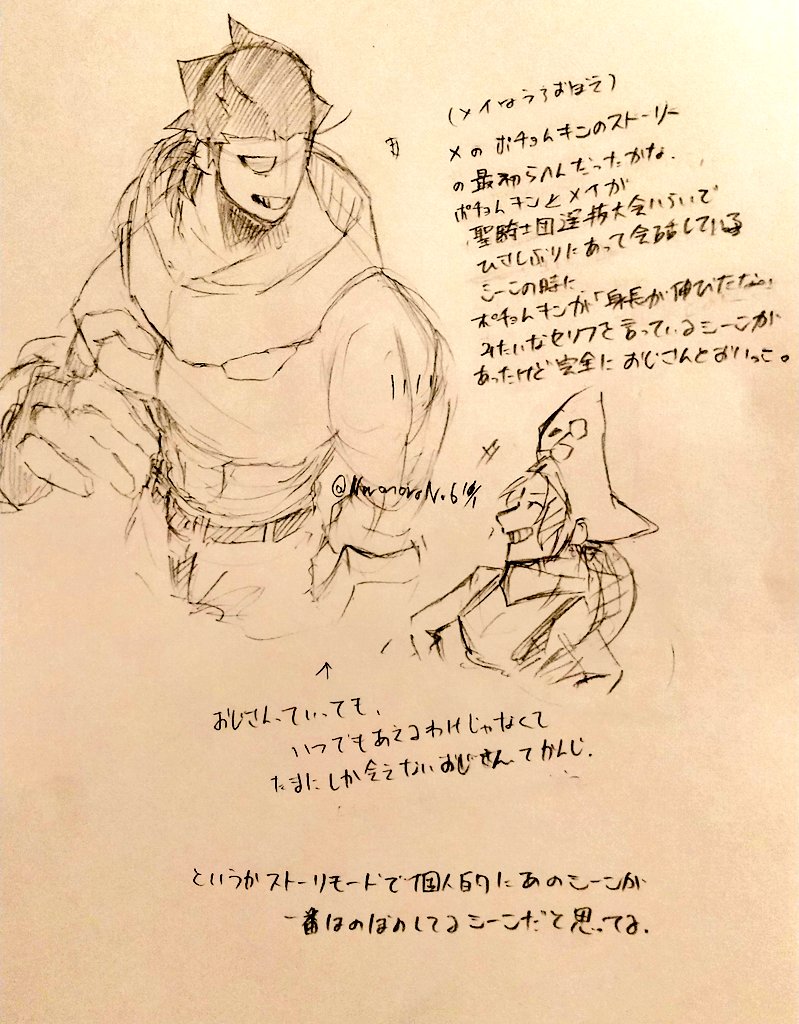 (メイはうろおぼえ)
×のポチョムキンのストーリー
の最初らへんだったかな.
ポチョムキンとメイが
聖騎士団選抜大会いらいで
ひさしぶりにあって会話している
シーンの時に
ポチョムキンが「身長が伸びたな。」
みたいなセリフを言っているシーンが
あったけど完全におじさんとおいっこ。
↑
おじさんっていっても、
いつでもあえるわけじゃなくて
たまにしか会えないおじさん、てかんじ.
というかストーリモードで個人的にあのシーンが
一番ほのぼのしてるシーンだと思ってる.